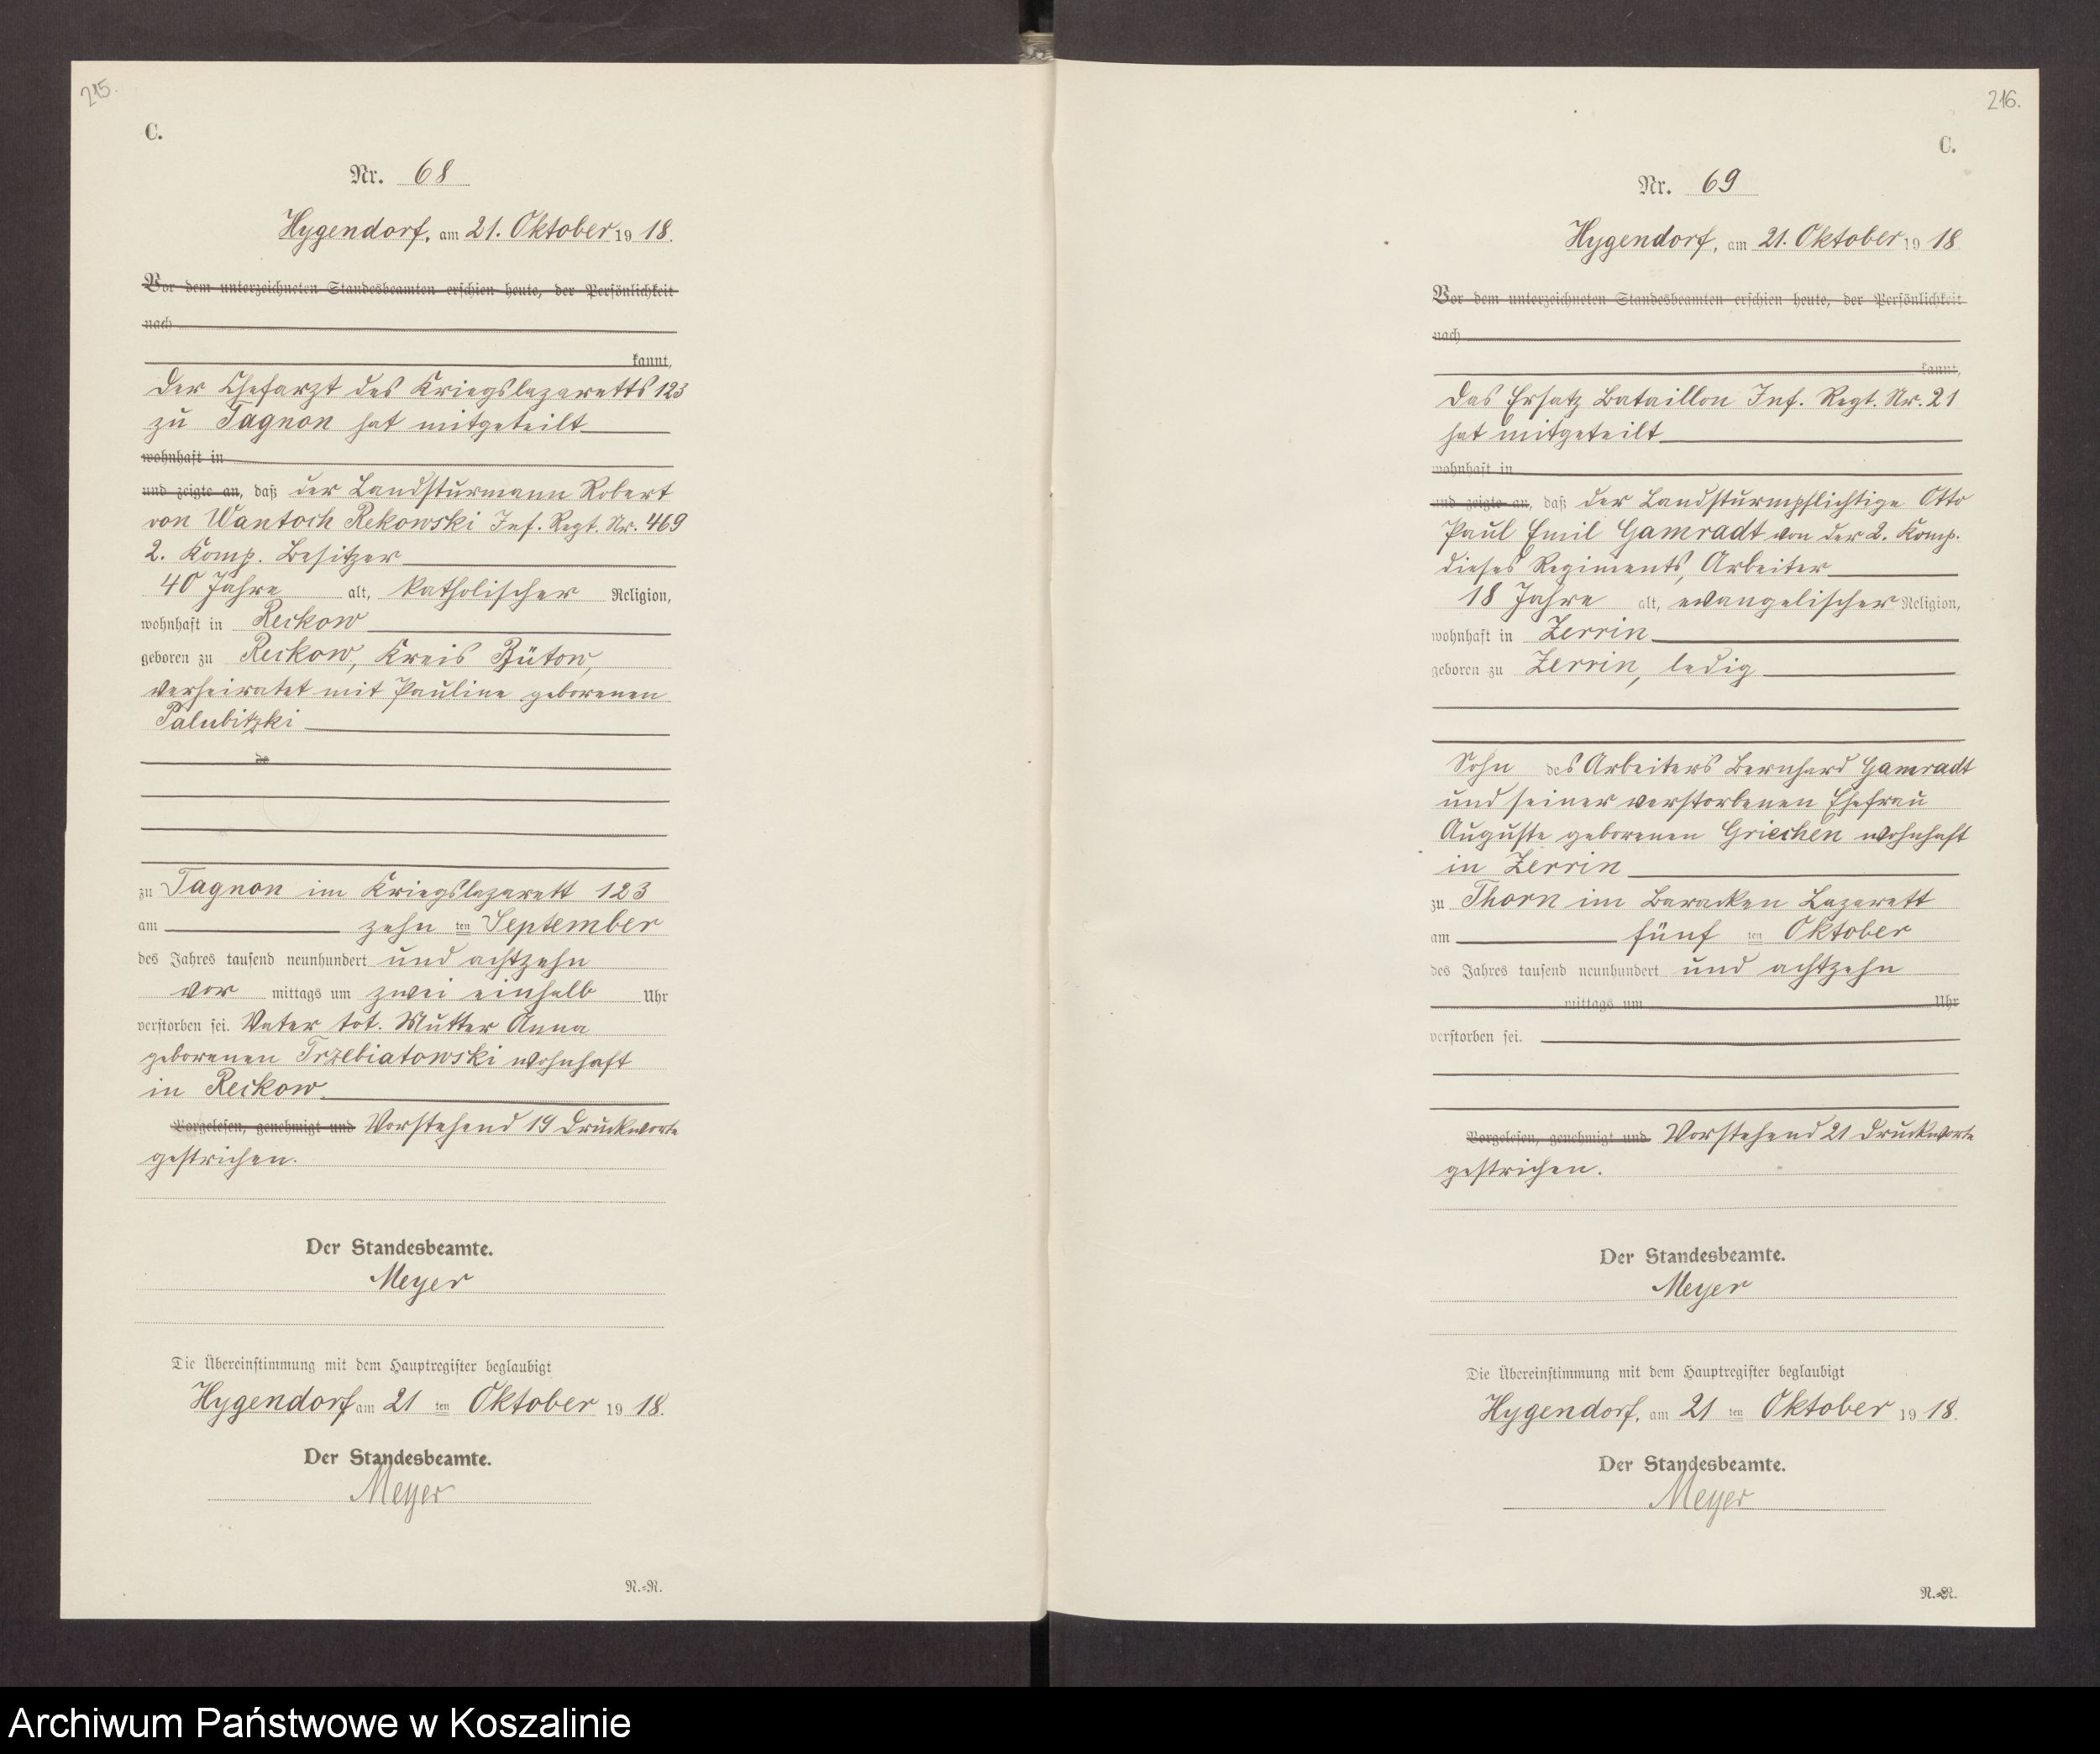 215.
C.
Nr. 68
Hygendorf, am 21. Oktober 1918.
Vor dem unterzeichneten Standesbeamten erschien heute, der Persönlichkeit
nach
kannt,
Der Chefarzt des Kriegslazaretts 123
zu Tagnon hat mitgeteilt
wohnhaft in
und zeigte an, daß der Landsturmann Robert
von Wantoch Rekowski Inf. Regt. Nr. 469
2. Komp. Besitzer
40 Jahre alt, katholischer Religion,
wohnhaft in Reckow
geboren zu Reckow, Kreis Bütow,
verheiratet mit Pauline geborenen
Palubitzki
des
zu Tagnon im Kriegslazarett 123
am zehn ten September
des Jahres tausend neunhundert und achtzehn
vor mittags um zwei einhalb Uhr
verstorben sei. Vater tot. Mutter Anna
geborenen Trzebiatowski wohnhaft
in Reckow.
Vorgelesen, genehmigt und Vorstehend 19 Druckworte
gestrichen.
Der Standesbeamte.
Meyer
Die Übereinstimmung mit dem Hauptregister beglaubigt
Hygendorf am 21 ten Oktober 1918.
Der Standesbeamte.
Meyer
N.=R.
216.
C.
Nr. 69
Hygendorf, am 21. Oktober 1918
Vor dem unterzeichneten Standesbeamten erschien heute, der Persönlichkeit
nach
kannt,
Das Ersatz Bataillon Inf. Regt. Nr. 21
hat mitgeteilt
wohnhaft in
und zeigte an, daß der Landsturmpflichtige Otto
Paul Emil Gamradt von der 2. Komp.
dieses Regiments, Arbeiter
18 Jahre alt, evangelischer Religion,
wohnhaft in Zerrin
geboren zu Zerrin, ledig
Sohn des Arbeiters Bernhard Gamradt
und seiner verstorbenen Ehefrau
Auguste geborenen Griechen wohnhaft
in Zerrin
zu Thorn im Baracken Lazarett
am fünf ten Oktober
des Jahres tausend neunhundert und achtzehn
mittags um Uhr
verstorben sei.
Vorgelesen, genehmigt und Vorstehend 21 Druckworte
gestrichen.
Der Standesbeamte.
Meyer
Die Übereinstimmung mit dem Hauptregister beglaubigt
Hygendorf, am 21 ten Oktober 1918.
Der Standesbeamte.
Meyer
N.=R.
Archiwum Państwowe w Koszalinie